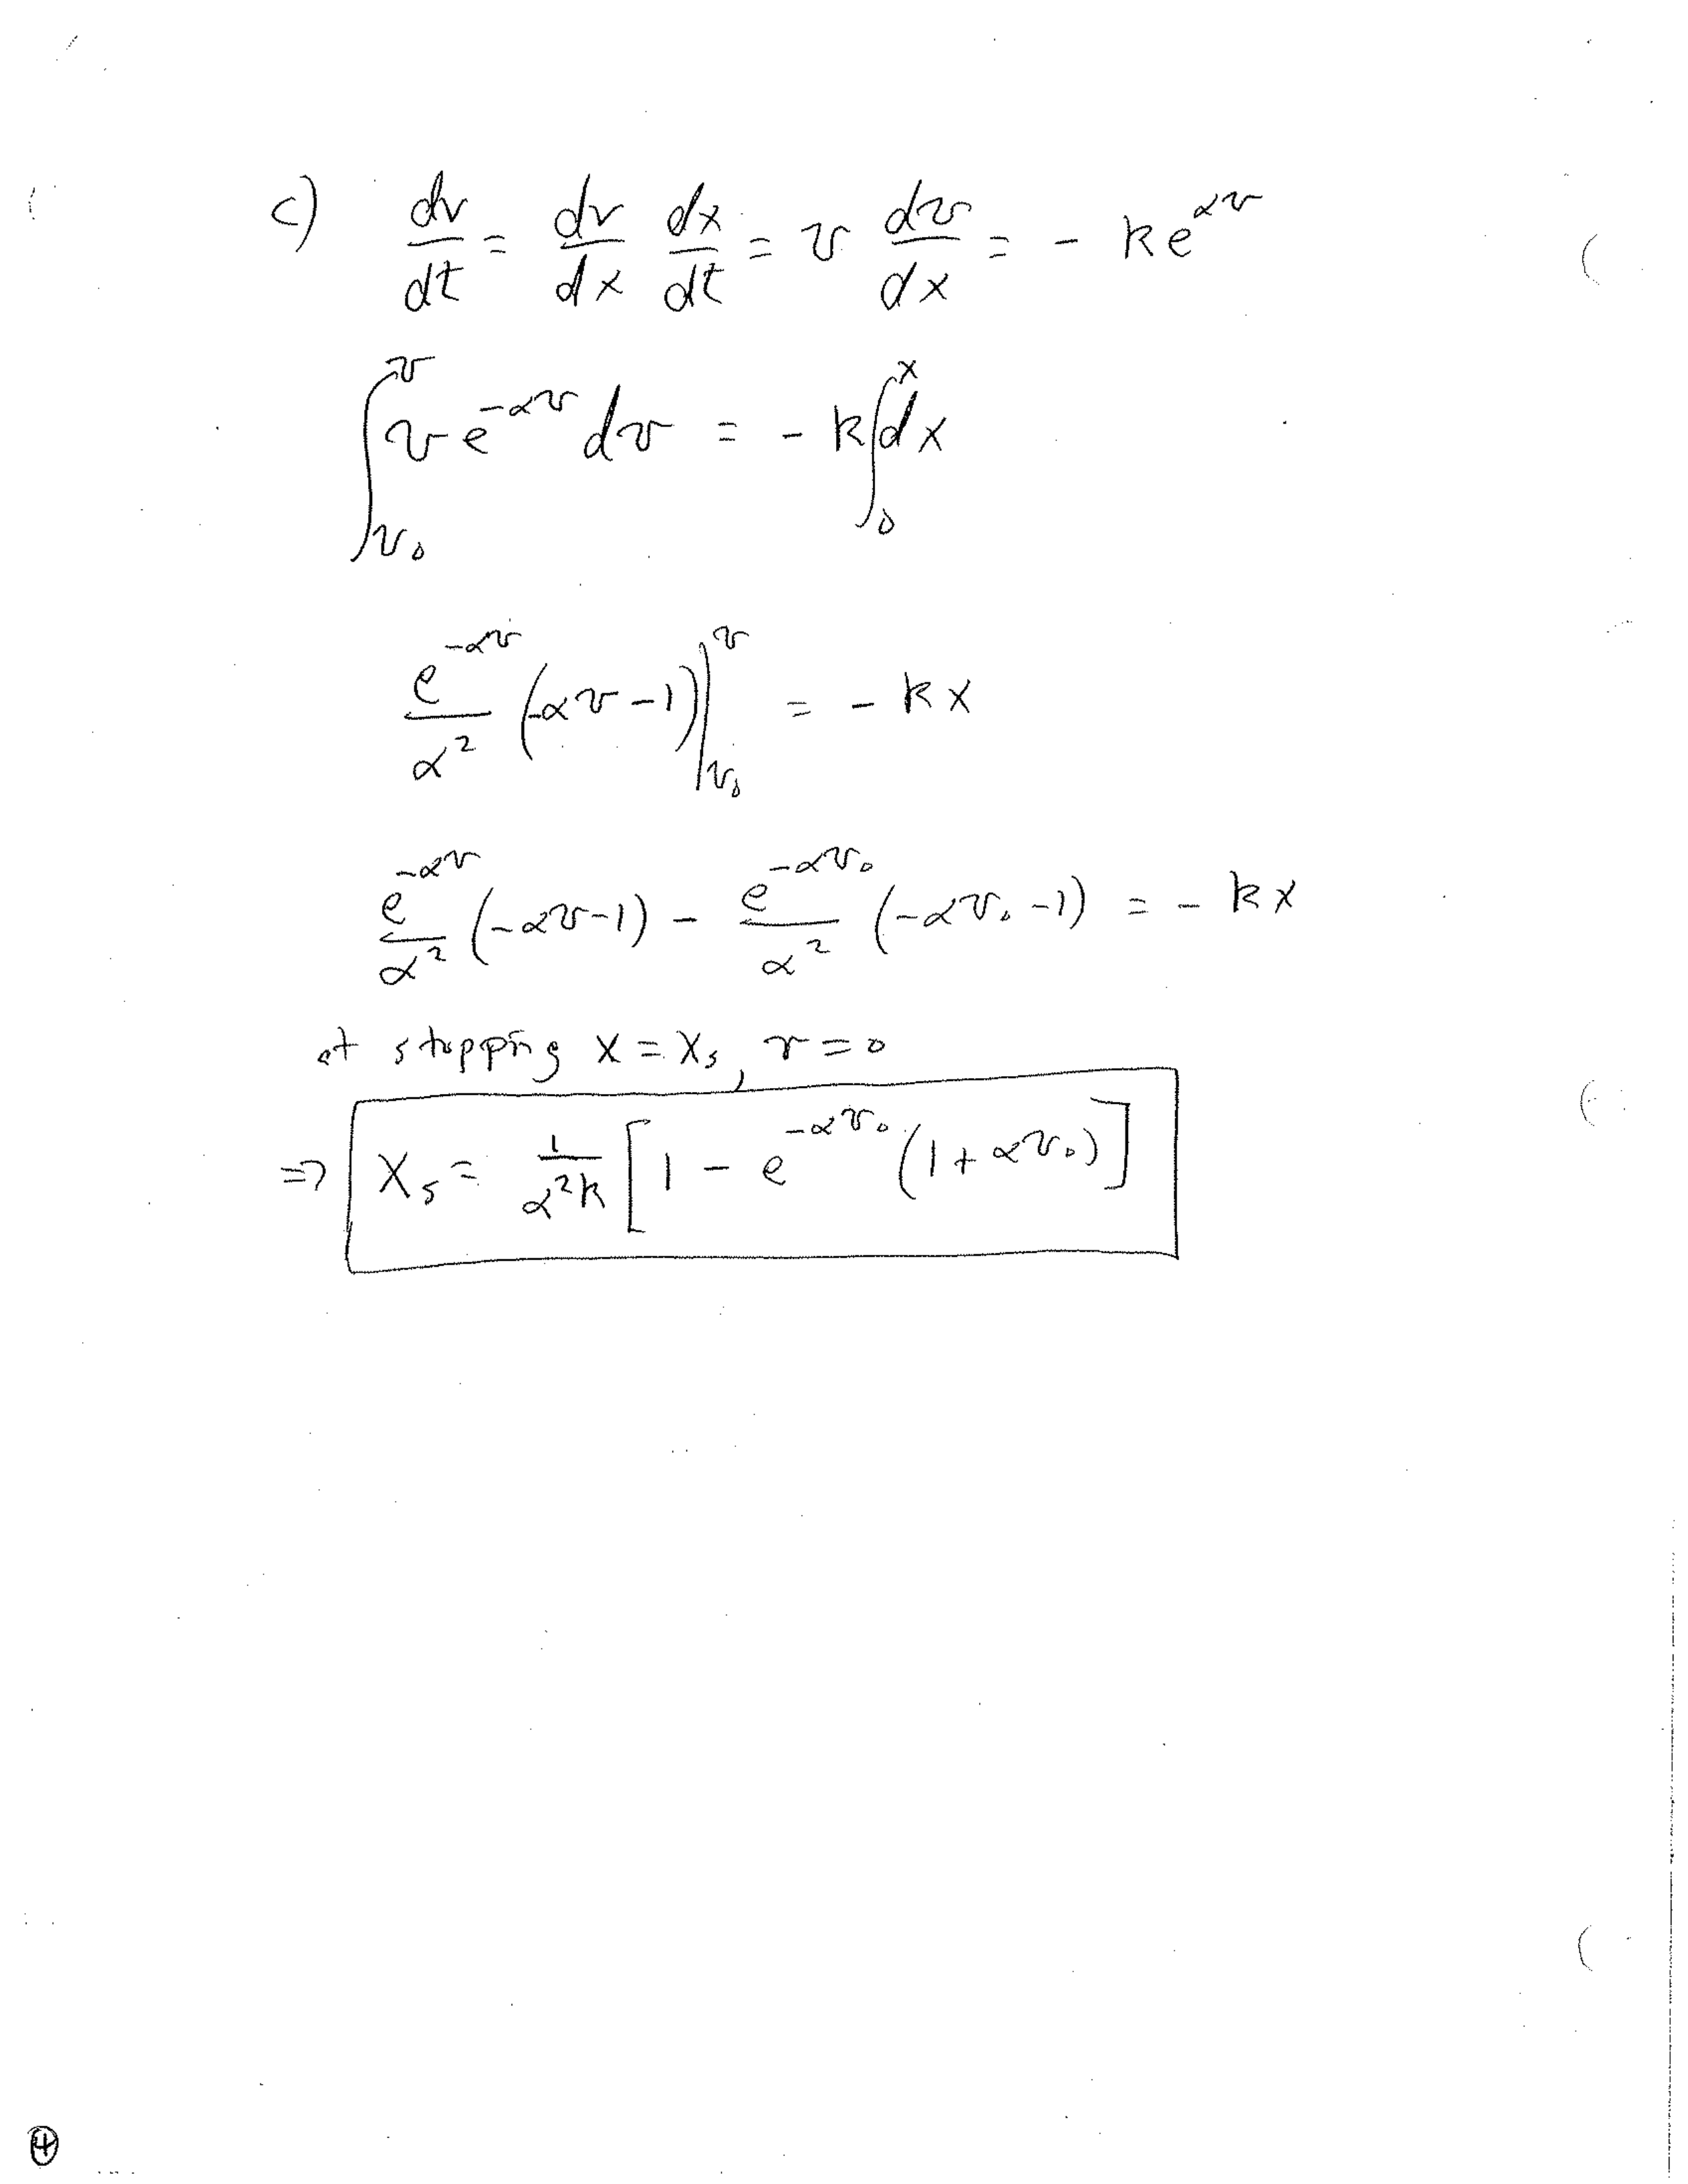 c) dv/dt = dv/dx dx/dt = v dv/dx = - k e^{αv}
∫_{v₀}^{v} v e^{-αv} dv = - k ∫_{0}^{x} dx
e^{-αv}/α² (-αv - 1) |_{v₀}^{v} = - kx
e^{-αv}/α² (-αv - 1) - e^{-αv₀}/α² (-αv₀ - 1) = - kx
at stopping x = x_s, v = 0
⇒ x_s = 1/(α²k) [1 - e^{-αv₀} (1 + αv₀)]
④